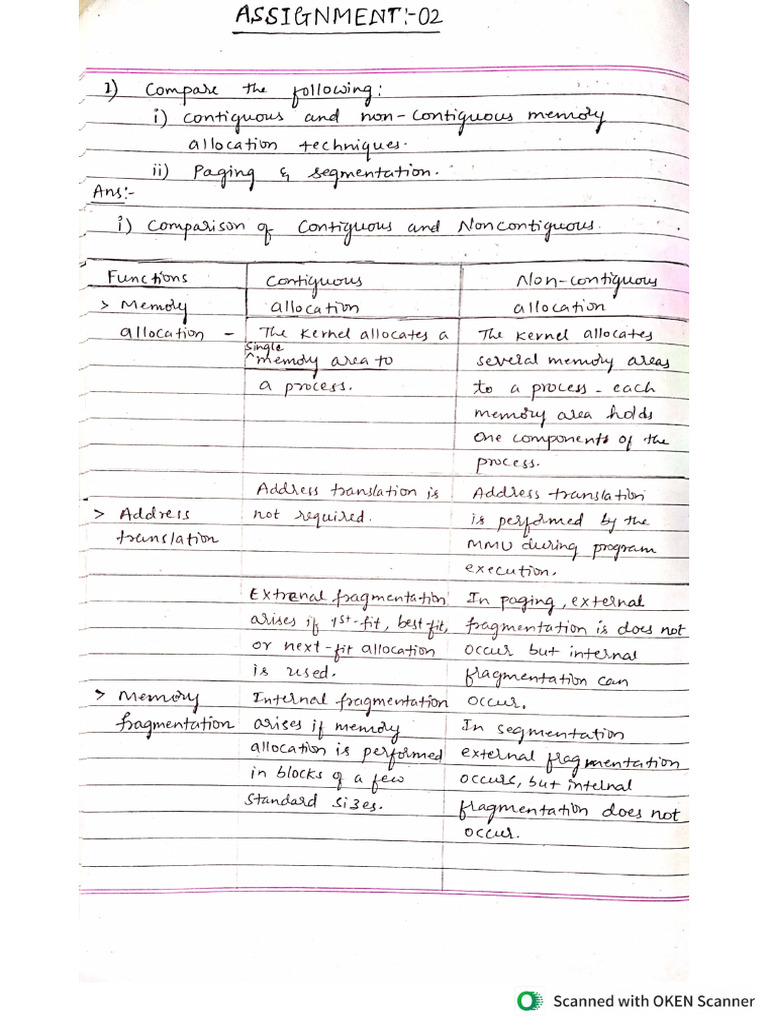 ASSIGNMENT:-02
1) Compare the following:
i) contiguous and non-contiguous memory
allocation techniques.
ii) Paging & segmentation.
Ans:-
i) Comparison of Contiguous and Noncontiguous.
Functions
> Memory
allocation -
> Address
translation
> Memory
fragmentation
Contiguous
allocation
The Kernel allocates a
single
^memory area to
a process.
Address translation is
not required.
Extrenal fragmentation
arises if 1st-fit, best fit,
or next-fit allocation
is used.
Internal fragmentation
arises if memory
allocation is performed
in blocks of a few
standard sizes.
Non-contiguous
allocation
The Kernel allocates
several memory areas
to a process - each
memory area holds
one components of the
process.
Address translation
is performed by the
MMU during program
execution.
In paging, external
fragmentation is does not
occur but internal
fragmentation can
occur.
In segmentation
external fragmentation
occurs, but internal
fragmentation does not
occur.
Scanned with OKEN Scanner